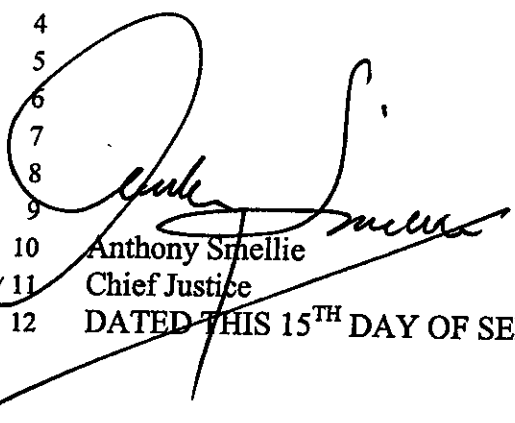 4
5
6
7
8
9
10 Anthony Smellie
11 Chief Justice
12 DATED THIS 15TH DAY OF SE